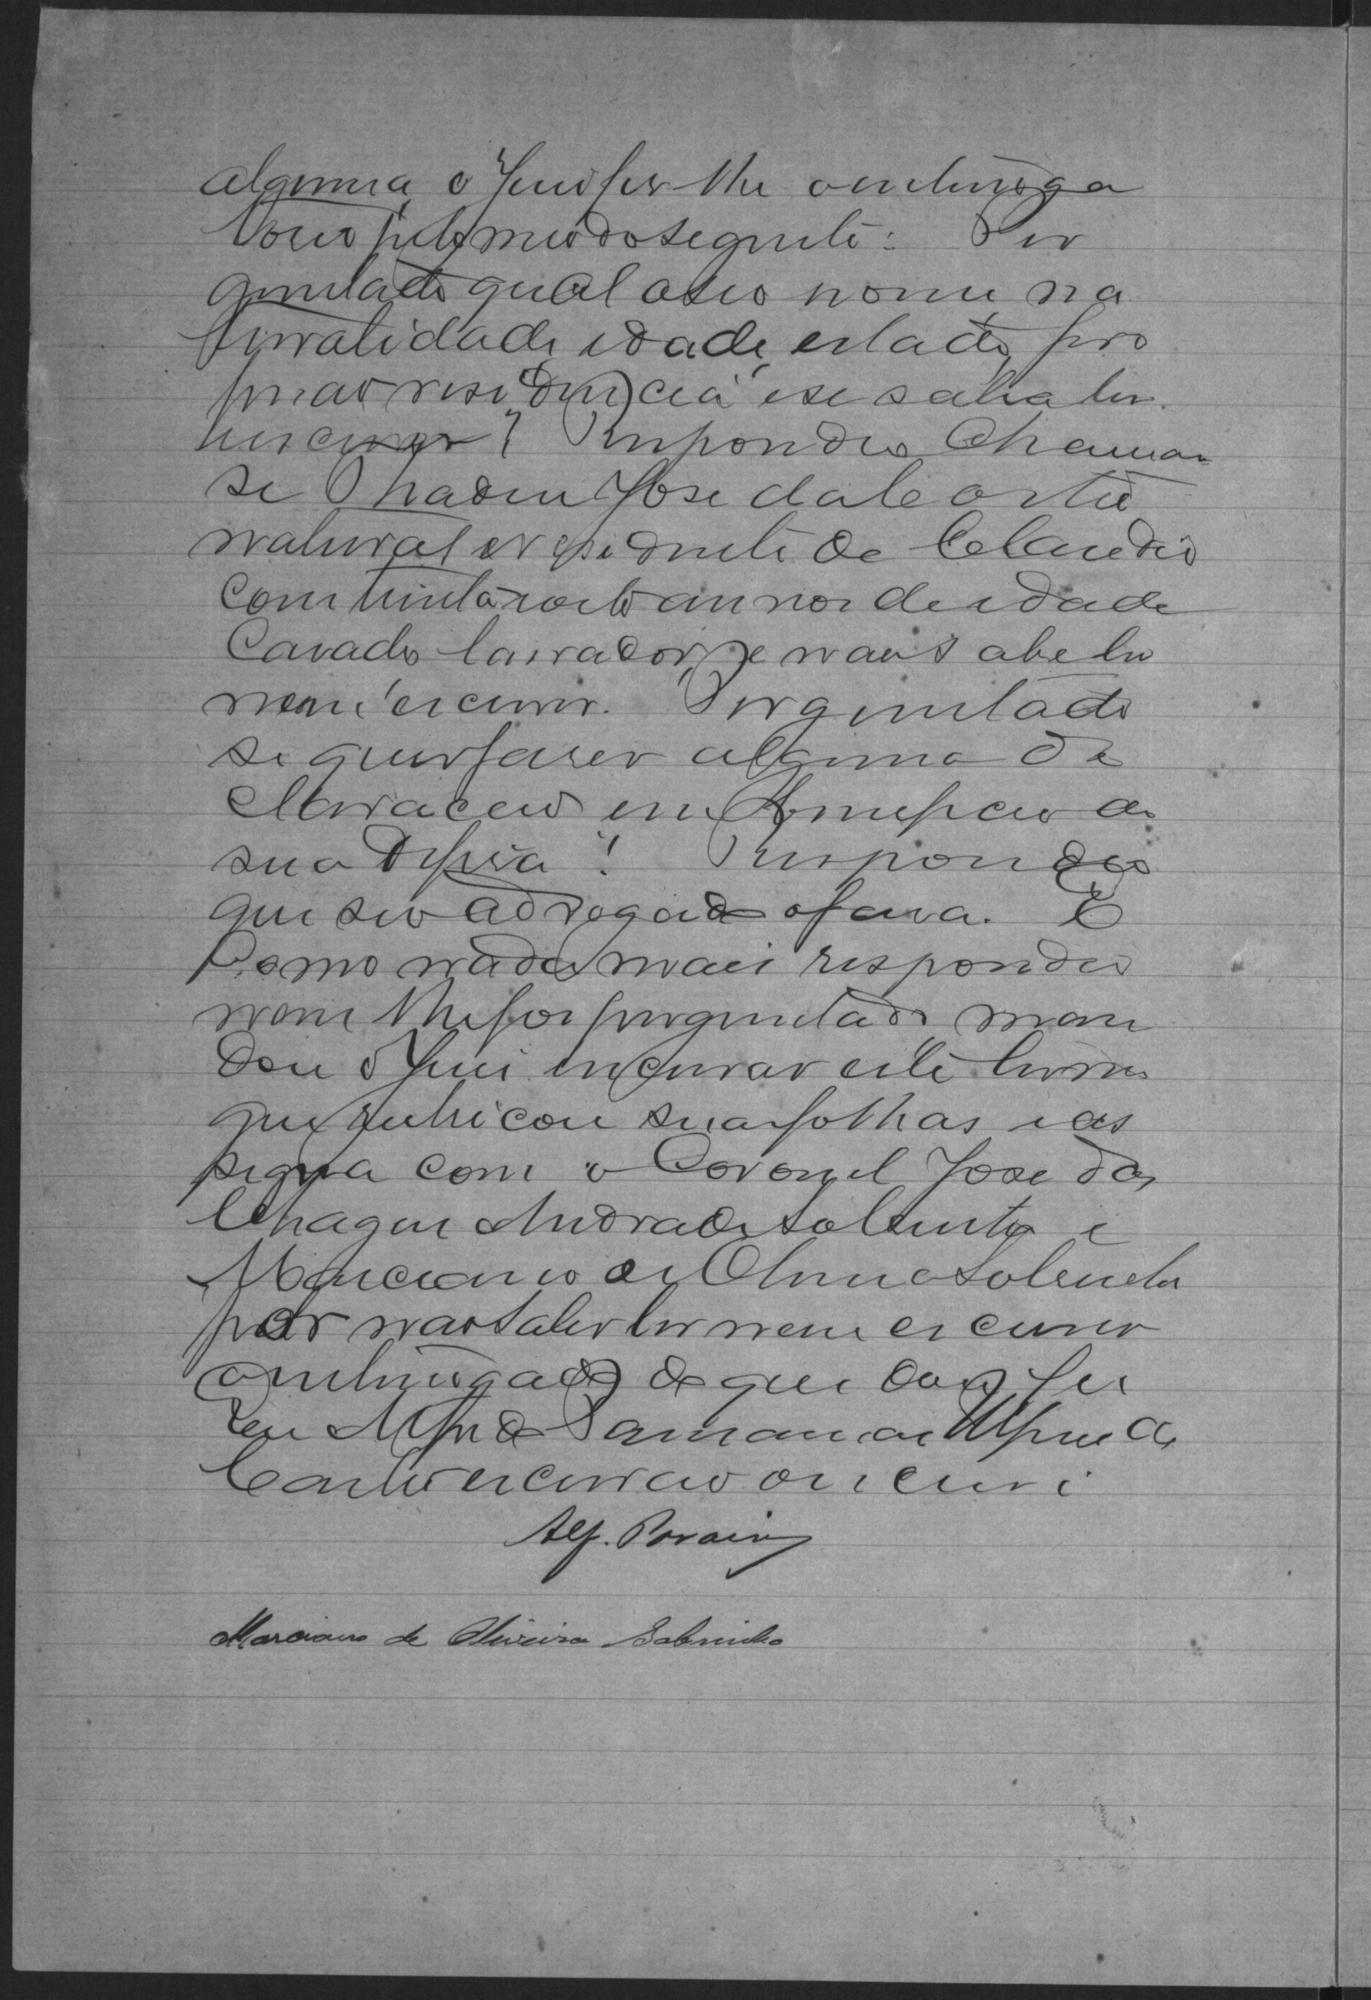 alguma, o Juiz fez-lhe o interroga
torio pelo modo seguinte: Per
guntado qual o seo nome, na
turalidade, idade, estado, pro
fissão residencia e se sabia ler
e escrever? Respondeo Chamar
se José da Costa
natural e residente de Claudio
com trinta e oito annos de idade
Casado lavrador, e não sabe ler
nem escrever. Perguntado
se quer fazer alguma de
claração em de
sua defesa? Respondeo
que seo advogado o fará. E
Como nada mais respondeo
nem lhe foi perguntado, man
dou o Juiz encerrar este termo
que rubricou suas folhas e as
signa com o Coronel José das
Chagas Andrade Sobrinho e
Marciano de Oliveira Sobrinho
por não saber ler nem escrever
o interrogado do que dou fé
Eu de
Castro escrivão o escrevi
Marciano de Oliveira Sobrinho